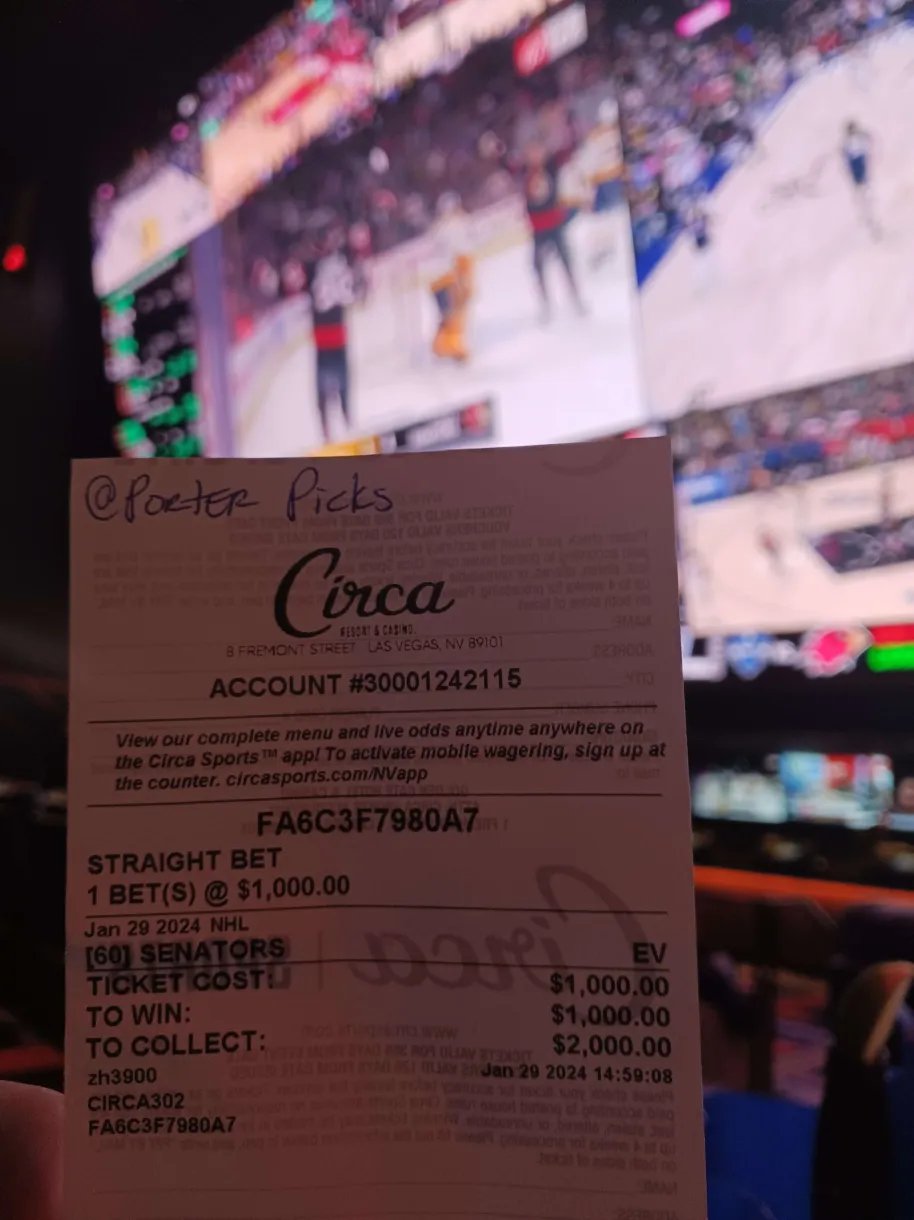 @Porter Picks
Circa
RESORT & CASINO.
8 FREMONT STREET LAS VEGAS, NV 89101
ACCOUNT #30001242115
View our complete menu and live odds anytime anywhere on
the Circa Sports™ app! To activate mobile wagering, sign up at
the counter. circasports.com/NVapp
FA6C3F7980A7
STRAIGHT BET
1 BET(S) @ $1,000.00
Jan 29 2024 NHL
[60] SENATORS EV
TICKET COST: $1,000.00
TO WIN: $1,000.00
TO COLLECT: $2,000.00
zh3900 Jan 29 2024 14:59:08
CIRCA302
FA6C3F7980A7